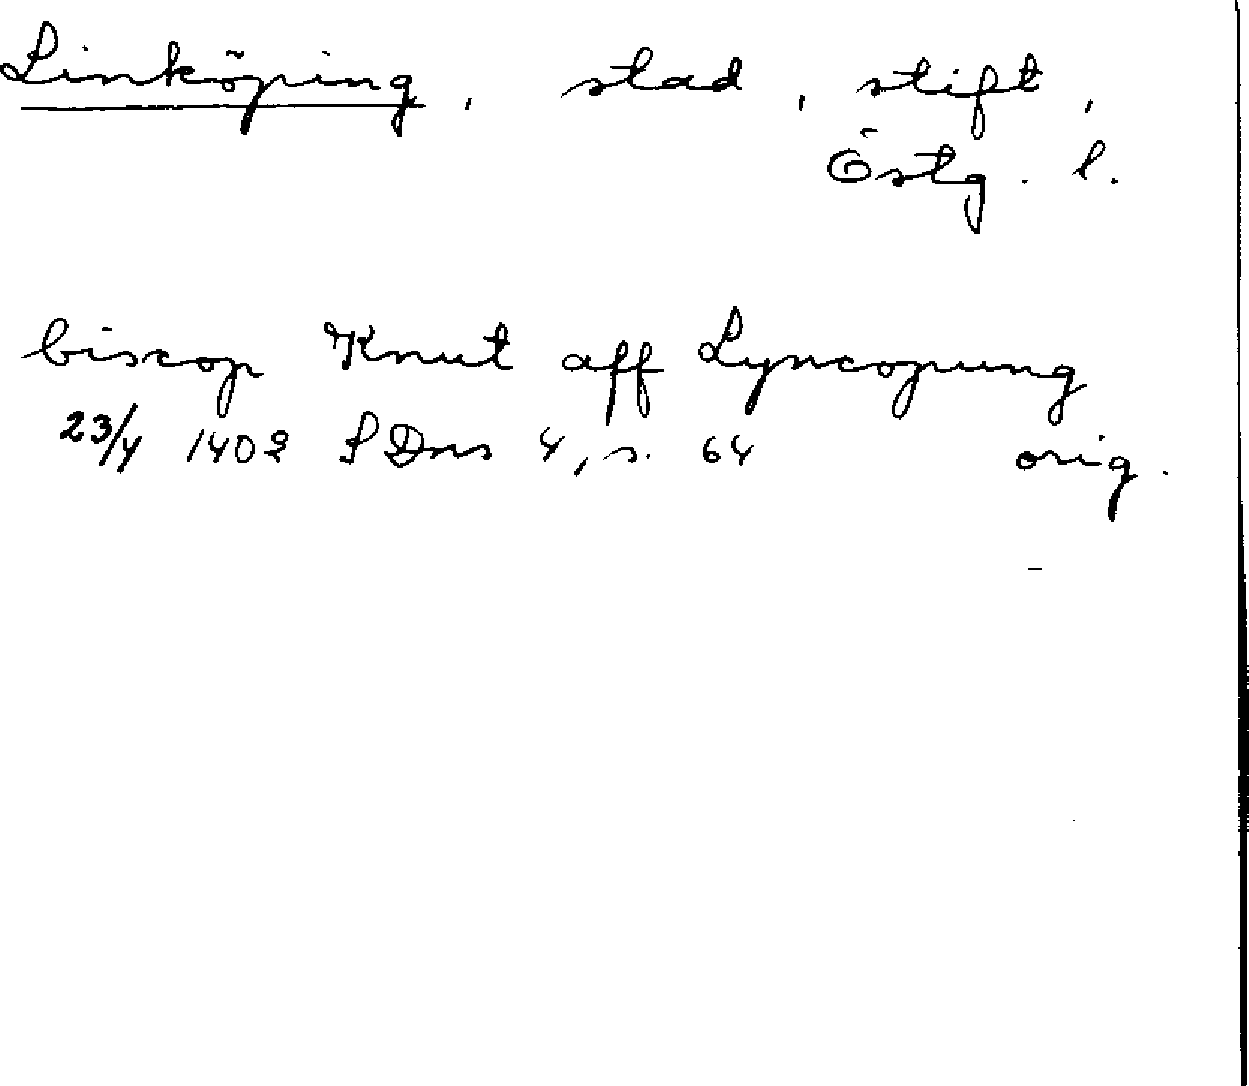 Linköping, stad, stift,
Östg. l.
biscop Knut aff Lyncopung
23/4 1402 SDns 4, s. 64 orig.